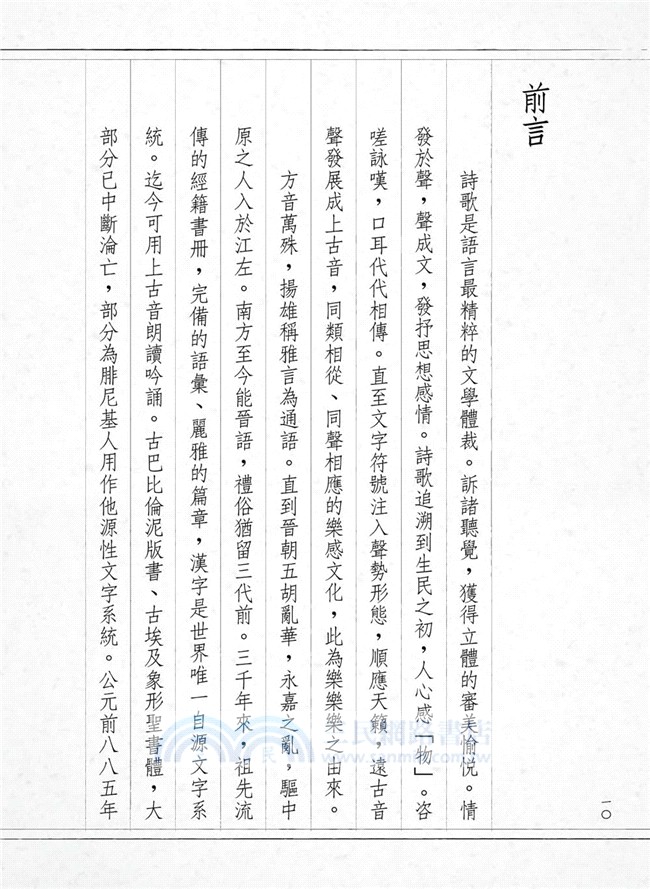 前言
詩歌是語言最精粹的文學體裁。訴諸聽覺，獲得立體的審美愉悅。情
發於聲，聲成文，發抒思想感情。詩歌追溯到生民之初，人心感「物」。咨
嗟詠嘆，口耳代代相傳。直至文字符號注入聲勢形態，順應天籟，遠古音
聲發展成上古音，同類相從、同聲相應的樂感文化，此為樂樂樂之由來。
方音萬殊，揚雄稱雅言為通語。直到晉朝五胡亂華，永嘉之亂，驅中
原之人入於江左。南方至今能晉語，禮俗猶留三代前。三千年來，祖先流
傳的經籍書冊，完備的語彙、麗雅的篇章，漢字是世界唯一自源文字系
統。迄今可用上古音朗讀吟誦。古巴比倫泥版書、古埃及象形聖書體，大
部分已中斷淪亡，部分為腓尼基人用作他源性文字系統。公元前八八五年
一〇
三民網路書店
www.sanmin.com.tw
民